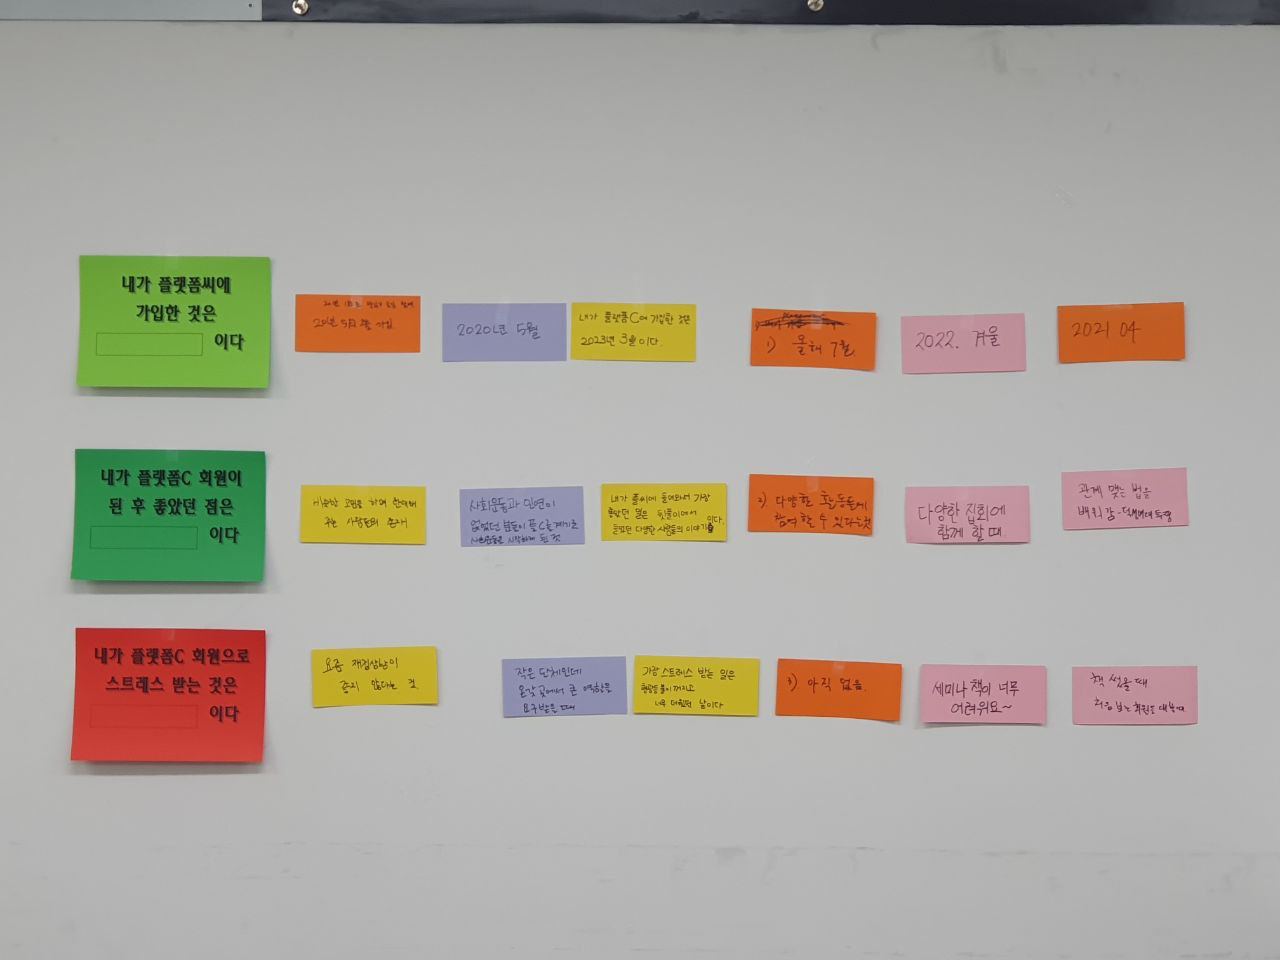 내가 플랫폼씨에
가입한 것은
이다
20년 5월 가입
2020년 5월
내가 플랫폼C에 가입한 것은
2023년 3월이다.
1) 올해 7월.
2022. 겨울
2021 04
내가 플랫폼C 회원이
된 후 좋았던 점은
이다
비슷한 고민을 하며 함께해
주는 사람들의 존재
사회운동과 인연이
없었던 분들이 플C를 계기로
사회운동을 시작하게 된 것
내가 플씨에 들어와서 가장
좋았던 일은 뒷풀이에서
들었던 다양한 사람들의 이야기이다.
2) 다양한 활동들에
참여할 수 있다는 것
다양한 집회에
함께 할 때
관계 맺는 법을
배워감
내가 플랫폼C 회원으로
스트레스 받는 것은
이다
요즘 재정상황이
좋지 않다는 것
작은 단체인데
온갖 곳에서 큰 역할을
요구받을 때
가장 스트레스 받는 일은
형광등 불이 꺼지고
너무 더웠던 날이다
3) 아직 없음.
세미나 책이 너무
어려워요~
책 썼을 때
처음 보는 회원